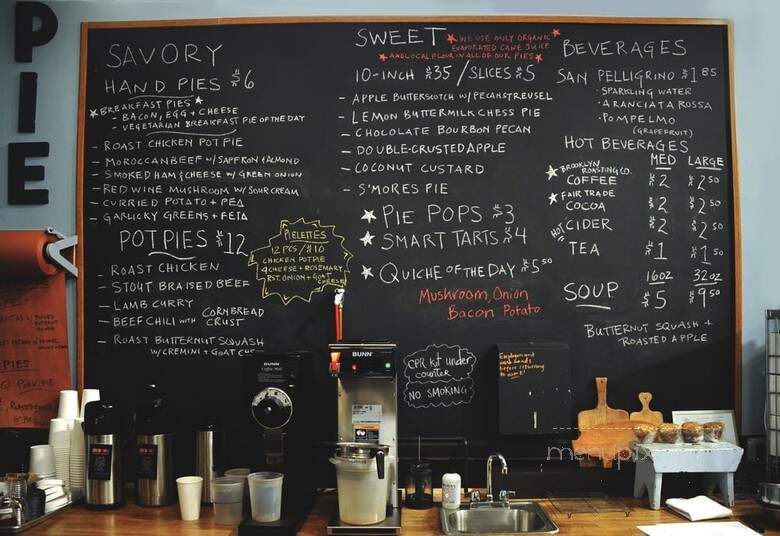 PIE
SAVORY
HAND PIES $6
BREAKFAST PIES
- BACON, EGG + CHEESE
- VEGETARIAN BREAKFAST PIE OF THE DAY
- ROAST CHICKEN POT PIE
- MOROCCAN BEEF W/ SAFFRON & ALMOND
- SMOKED HAM & CHEESE W/ GREEN ONION
- RED WINE MUSHROOM W/ SOUR CREAM
- CURRIED POTATO + PEA
- GARLICKY GREENS + FETA
POT PIES $12
- ROAST CHICKEN
- STOUT BRAISED BEEF
- LAMB CURRY
- BEEF CHILI WITH CORNBREAD CRUST
- ROAST BUTTERNUT SQUASH
W/ CREMINI + GOAT
PIELETTES
12 PCS / $10
CHICKEN POT PIE
4 CHEESE + ROSEMARY
RST. ONION + GOAT
CHEESE
SWEET
WE USE ONLY ORGANIC
EVAPORATED CANE JUICE
AND LOCAL FLOUR IN ALL OF OUR PIES
10-INCH $35 / SLICES $5
- APPLE BUTTERSCOTCH W/ PECAN STREUSEL
- LEMON BUTTERMILK CHESS PIE
- CHOCOLATE BOURBON PECAN
- DOUBLE-CRUSTED APPLE
- COCONUT CUSTARD
- S'MORES PIE
PIE POPS $3
SMART TARTS $4
QUICHE OF THE DAY $5.50
Mushroom, Onion
Bacon Potato
CPR kit under
counter
NO SMOKING
BEVERAGES
SAN PELLIGRINO $1.85
· SPARKLING WATER
· ARANCIATA ROSSA
· POMPELMO
(GRAPEFRUIT)
HOT BEVERAGES
MED LARGE
BROOKLYN ROASTING CO. COFFEE $2 $2.50
FAIR TRADE COCOA $2 $2.50
HOT CIDER $2 $2.50
TEA $1 $1.50
16OZ 32OZ
SOUP $5 $9.50
BUTTERNUT SQUASH +
ROASTED APPLE
Employees must
wash hands
before returning
to work!
BUNN
BUNN
PIES
menupix